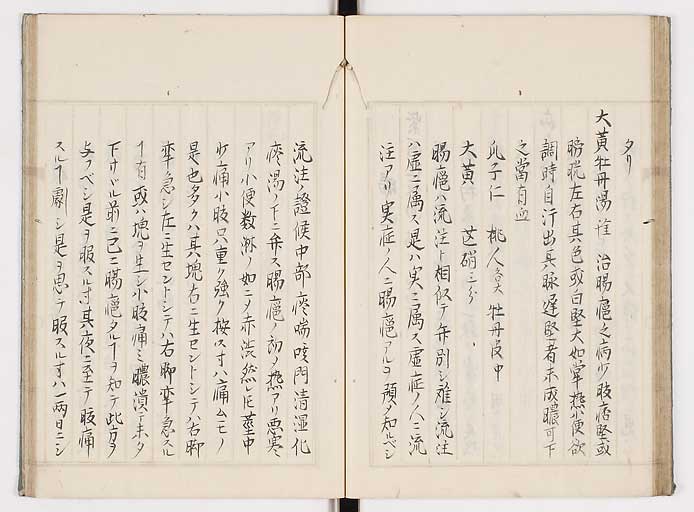 タリ
大黄牡丹湯 治腸癰之病少腹痞堅或
膀胱左右其色或白堅大如掌熱小便欲
調時自汗出其脉遅堅者未成膿可下
之當有血
瓜子仁 桃人各大 牡丹皮中
大黄 芒硝三分
腸癰ハ流注ト相似テ弁別シ難シ流注
ハ虚ニ属ス是ハ実ニ属ス虚症ノ人ニ流
注アリ実症ノ人ニ腸癰アルコ預メ知ルベシ
流注ノ證候中部瘀喘咳門清湿化
痰湯ノ下ニ弁ス腸癰ノ初ノ熱アリ悪寒
アリ小便数淋ノ如ニ乄赤渋然レ𪜈莖中
少痛小肢只重ク強ク按スオハ痛ムモノ
是也多クハ其塊右ニ生セントシテハ右脚
牽急シ左ニ生セントシテハ右脚牽急スル
下有或ハ塊ヲ生シ小肢痛ミ膿潰テ未タ
下サヾル前ニ已ニ腸癰タル下ヲ知テ此方ヲ
与フベシ是ヲ服スルオ其夜ニ至テ肢痛
スル下劇シ是ヲ忍テ服スルオハ一両日ニシ